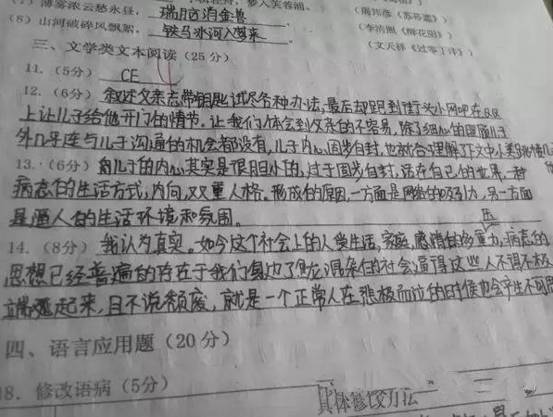 (7) 薄雾浓云愁永昼，瑞脑消金兽
(8) 山河破碎风飘絮，铁马冰河入梦来 (李清照《醉花阴》)
(文天祥《过零丁洋》)
三、文学类文本阅读（25分）
11.（5分） CE
12.（6分）叙述父亲忘带钥匙试尽各种办法,最后却跑到街头小网吧在QQ
上让儿子给他开门的情节。让我们体会到父亲的不容易,除了细心的照顾儿子
外几乎连与儿子沟通的机会都没有,儿子内心固步自封,也就合理解了下文中
13.（6分）儿子的内心其实是很胆小的,过于固步自封,活在自己的世界,一种
病态的生活方式,内向,双重人格。形成的原因,一方面是网络的吸引力,另一方面
是逼人的生活环境和氛围。
14.（8分）我认为真实。如今这个社会上的人受生活,家庭,感情的多重压力,病态的
思想已经普遍的存在于我们身边了,混杂的社会逼得这些人不得不极
端起来,且不说颓废,就是一个正常人在
四、语言应用题（20分）
18. 修改语病（5分） 具体修改方法